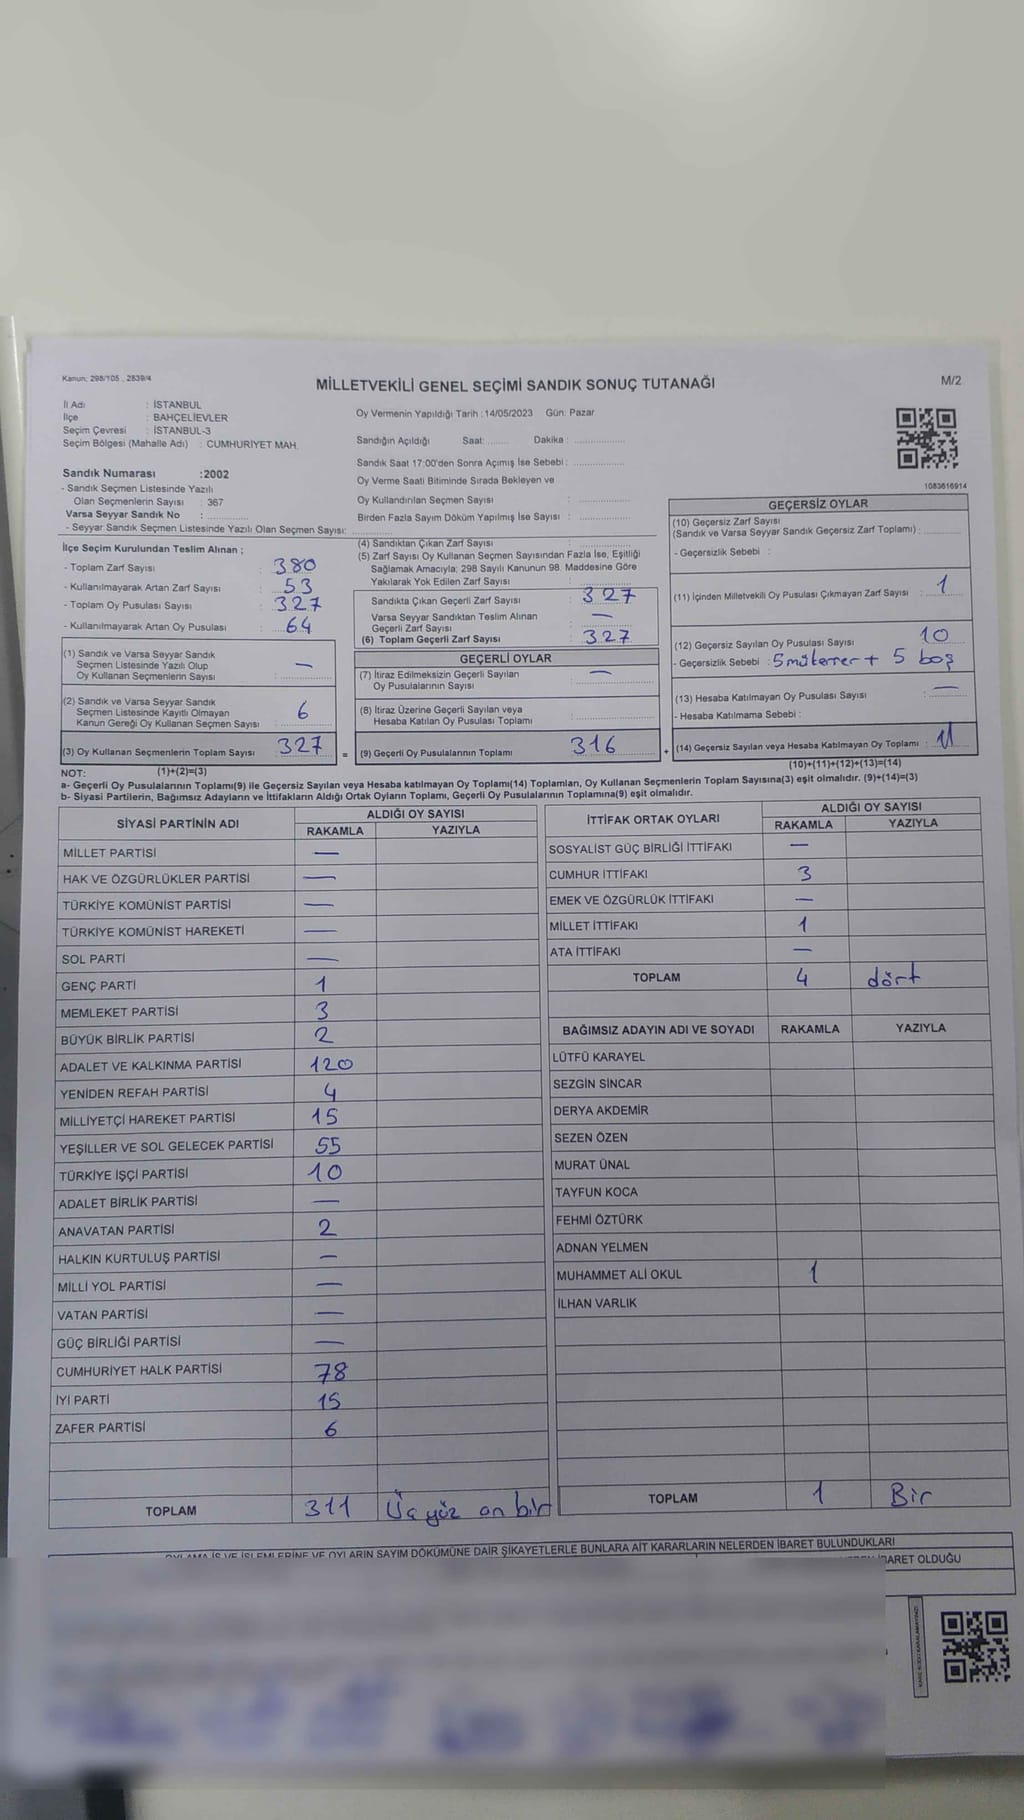 Kanun: 298/105 , 2839/4
MİLLETVEKİLİ GENEL SEÇİMİ SANDIK SONUÇ TUTANAĞI
M/2
İl Adı : İSTANBUL
İlçe : BAHÇELİEVLER
Seçim Çevresi : İSTANBUL-3
Seçim Bölgesi (Mahalle Adı) : CUMHURİYET MAH.
Sandık Numarası :2002
- Sandık Seçmen Listesinde Yazılı
Olan Seçmenlerin Sayısı : 367
Varsa Seyyar Sandık No :
- Seyyar Sandık Seçmen Listesinde Yazılı Olan Seçmen Sayısı:
Oy Vermenin Yapıldığı Tarih :14/05/2023 Gün: Pazar
Sandığın Açıldığı Saat: Dakika :
Sandık Saat 17:00'den Sonra Açımış İse Sebebi :
Oy Verme Saati Bitiminde Sırada Bekleyen ve
Oy Kullandırılan Seçmen Sayısı :
Birden Fazla Sayım Döküm Yapılmış İse Sayısı :
1083616914
İlçe Seçim Kurulundan Teslim Alınan ;
- Toplam Zarf Sayısı : 380
- Kullanılmayarak Artan Zarf Sayısı : 53
- Toplam Oy Pusulası Sayısı : 327
- Kullanılmayarak Artan Oy Pusulası : 64
(1) Sandık ve Varsa Seyyar Sandık
Seçmen Listesinde Yazılı Olup
Oy Kullanan Seçmenlerin Sayısı : —
(2) Sandık ve Varsa Seyyar Sandık
Seçmen Listesinde Kayıtlı Olmayan
Kanun Gereği Oy Kullanan Seçmen Sayısı : 6
(3) Oy Kullanan Seçmenlerin Toplam Sayısı : 327
(4) Sandıktan Çıkan Zarf Sayısı :
(5) Zarf Sayısı Oy Kullanan Seçmen Sayısından Fazla İse, Eşitliği
Sağlamak Amacıyla; 298 Sayılı Kanunun 98. Maddesine Göre
Yakılarak Yok Edilen Zarf Sayısı :
Sandıkta Çıkan Geçerli Zarf Sayısı : 327
Varsa Seyyar Sandıktan Teslim Alınan
Geçerli Zarf Sayısı : —
(6) Toplam Geçerli Zarf Sayısı : 327
GEÇERLİ OYLAR
(7) İtiraz Edilmeksizin Geçerli Sayılan
Oy Pusulalarının Sayısı : —
(8) İtiraz Üzerine Geçerli Sayılan veya
Hesaba Katılan Oy Pusulası Toplamı :
= (9) Geçerli Oy Pusulalarının Toplamı : 316
GEÇERSİZ OYLAR
(10) Geçersiz Zarf Sayısı
(Sandık ve Varsa Seyyar Sandık Geçersiz Zarf Toplamı) :
- Geçersizlik Sebebi :
(11) İçinden Milletvekili Oy Pusulası Çıkmayan Zarf Sayısı : 1
(12) Geçersiz Sayılan Oy Pusulası Sayısı : 10
- Geçersizlik Sebebi : 5 mükerrer + 5 boş
(13) Hesaba Katılmayan Oy Pusulası Sayısı : —
- Hesaba Katılmama Sebebi :
+ (14) Geçersiz Sayılan veya Hesaba Katılmayan Oy Toplamı : 11
NOT: (1)+(2)=(3)
(10)+(11)+(12)+(13)=(14)
a- Geçerli Oy Pusulalarının Toplamı(9) ile Geçersiz Sayılan veya Hesaba katılmayan Oy Toplamı(14) Toplamları, Oy Kullanan Seçmenlerin Toplam Sayısına(3) eşit olmalıdır. (9)+(14)=(3)
b- Siyasi Partilerin, Bağımsız Adayların ve İttifakların Aldığı Ortak Oyların Toplamı, Geçerli Oy Pusulalarının Toplamına(9) eşit olmalıdır.
SİYASİ PARTİNİN ADI ALDIĞI OY SAYISI
RAKAMLA YAZIYLA
MİLLET PARTİSİ —
HAK VE ÖZGÜRLÜKLER PARTİSİ —
TÜRKİYE KOMÜNİST PARTİSİ —
TÜRKİYE KOMÜNİST HAREKETİ —
SOL PARTİ —
GENÇ PARTİ 1
MEMLEKET PARTİSİ 3
BÜYÜK BİRLİK PARTİSİ 2
ADALET VE KALKINMA PARTİSİ 120
YENİDEN REFAH PARTİSİ 4
MİLLİYETÇİ HAREKET PARTİSİ 15
YEŞİLLER VE SOL GELECEK PARTİSİ 55
TÜRKİYE İŞÇİ PARTİSİ 10
ADALET BİRLİK PARTİSİ —
ANAVATAN PARTİSİ 2
HALKIN KURTULUŞ PARTİSİ —
MİLLİ YOL PARTİSİ —
VATAN PARTİSİ —
GÜÇ BİRLİĞİ PARTİSİ —
CUMHURİYET HALK PARTİSİ 78
İYİ PARTİ 15
ZAFER PARTİSİ 6
TOPLAM 311 Üç yüz on bir
İTTİFAK ORTAK OYLARI ALDIĞI OY SAYISI
RAKAMLA YAZIYLA
SOSYALİST GÜÇ BİRLİĞİ İTTİFAKI —
CUMHUR İTTİFAKI 3
EMEK VE ÖZGÜRLÜK İTTİFAKI —
MİLLET İTTİFAKI 1
ATA İTTİFAKI —
TOPLAM 4 dört
BAĞIMSIZ ADAYIN ADI VE SOYADI RAKAMLA YAZIYLA
LÜTFÜ KARAYEL
SEZGİN SİNCAR
DERYA AKDEMİR
SEZEN ÖZEN
MURAT ÜNAL
TAYFUN KOCA
FEHMİ ÖZTÜRK
ADNAN YELMEN
MUHAMMET ALİ OKUL 1
İLHAN VARLIK
TOPLAM 1 Bir
OYLAMA İŞ VE İŞLEMLERİNE VE OYLARIN SAYIM DÖKÜMÜNE DAİR ŞİKAYETLERLE BUNLARA AİT KARARLARIN NELERDEN İBARET BULUNDUKLARI
İBARET OLDUĞU